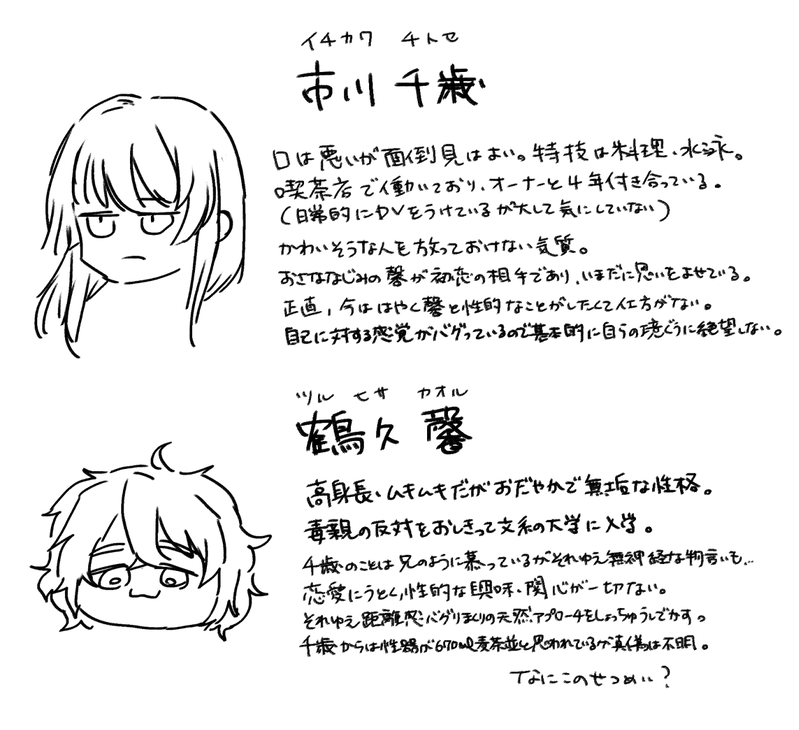 イチカワ チトセ
市川 千歳
口は悪いが面倒見はよい。特技は料理、水泳。
喫茶店で働いており、オーナーと4年付き合っている。
(日常的にDVをうけているが大して気にしていない)
かわいそうな人を放っておけない気質。
おさななじみの馨が初恋の相手であり、いまだに思いをよせている。
正直、今ははやく馨と性的なことがしたくて仕方がない。
自己に対する感覚がバグっているので基本的に自らの境ぐうに絶望しない。
ツル ヒサ カオル
鶴久 馨
高身長、ムキムキだがおだやかで無垢な性格。
毒親の反対をおしきって文系の大学に入学。
千歳のことは兄のように慕っているがそれゆえ無神経な物言いも…
恋愛にうとく、性的な興味・関心が一切ない。
それゆえ距離感バグりまくりの天然アプローチをしょっちゅうしでかす。
千歳からは性器が670ml麦茶並と思われているが真偽は不明。
Tなにこのせつめい?